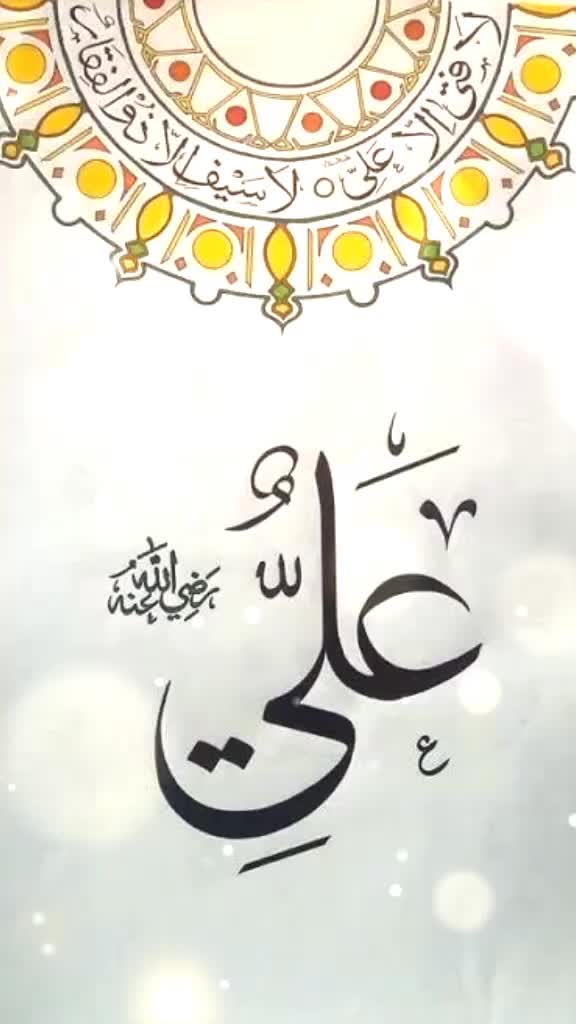 لا فتى الا علي ۝ لا سيف الا ذو الفقار
عَلِيٌّ
رَضِيَ اللّٰه عنه